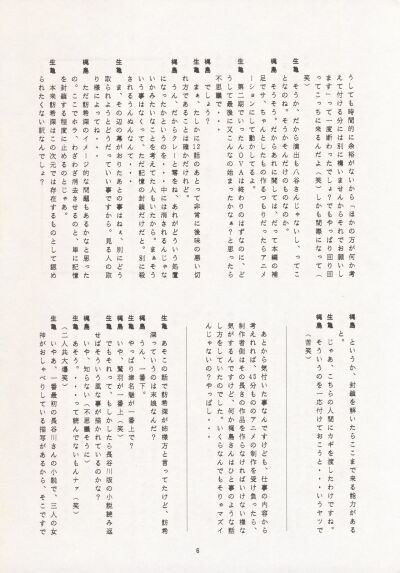 うしても時間的に余裕がないから「ほかの方が何か考
えて付ける分には別に構いませんからそれでお願いし
ます」って一度断わったでしょ？でもやっぱり回り回
ってこっちに来るんだよ（笑）しかも間際になって（
笑）
生亀　そうか、だから演出も八谷さんじゃないし、ってこ
となのね。そうかそんだけのものなのか。
梶島　そうそう。だからあれに関しては、だって本編の補
足でサ、ちゃんとしたもの作るつもりだったらアニメ
ーションとして動かしてるよ。
生亀　第二期でいったんOVAは終わりのはずなのに、ど
うして最後に又こんなの始まったかなぁ？と思ったら
不思議で・・・
梶島　でしょう！？
生亀　まぁ、たしかに12話のあとって非常に後味の悪い切
れ方であることは確かだけれど。
梶島　うん、だからクレーと零をね、あれがどういう処置
になったかというのを・・・中には消されるんじゃな
いかみたいなことを考えてた人もいたから。まぁそう
いう事はなくって、ただ記憶の封鎖だけだと。別に殺
されるうんぬんなんて・・・
生亀　ま、その辺の幕がおりたあとの事はねぇ、別にどう
取られようとどうだっていい事ですから。見る人の取
り様によってね・・・
梶島　ただ訪希深のイメージ的な問題もあるかなと思った
の。ここでホラ、わざわざ消去させるのと、単に記憶
を封鎖する程度に止めるのとじゃあ。
生亀　本来訪希深はこの次元では存在するものとして認め
られたくない訳なんでしょ？
梶島　というか、封鎖を解いたらここまで来る能力がある
と。
生亀　じゃあ、こちらの人間にカギを渡したわけですね。
梶島　そういうのを一応付けておこうと・・・いうヤツで
（苦笑）
あとから気付いた事なんですけども、仕事の内容から
考えれば、45分もののアニメの制作を受け負ったら、
制作者側はその長さの作品を作らなければいけない様な
気がするんですけど、何か梶島さんはひと事のような話
し方をしていたのでした。いくらなんでもそりゃマズイ
んじゃないの？やっぱし・・・
生亀　あそこの話で訪希深が姉様方と言ってたけど、訪希
深っていうのは末娘なんだ？
梶島　うん、一番下。
生亀　やっぱり瀬名魅が一番上で？
梶島　いや、鷲羽が一番上（笑）
生亀　でもそれって、もしかしたら長谷川版の小説読み返
せばそういう風な事が描かれているのかな？
梶島　いや、知らない（不思議そうに）
生亀　あそう。・・・って読んでないもんナァ（笑）
（二人共大爆笑）
生亀　いやあ、一番最初の長谷川さんの小説で、三人の女
神がおしゃべりしている描写があるから、そこですで
6